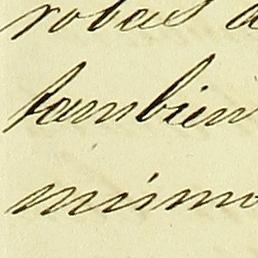 robas a
tambien
mismo